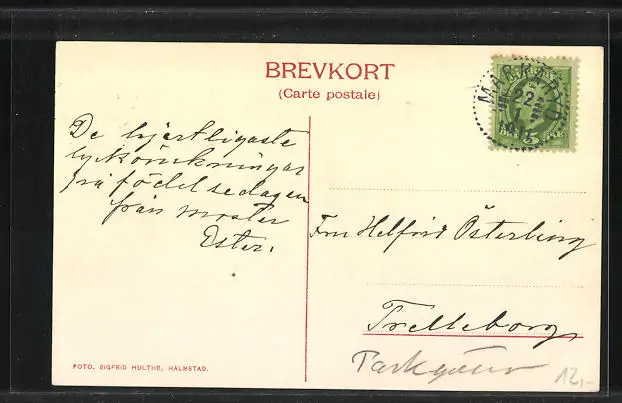 BREVKORT
(Carte postale)
MARKARYD
22
15
De hjertligaste
lyckönskningar
på födelsedagen
från moster
Ester.
Fru Helfrid Österling
Trelleborg
FOTO. SIGFRID HULTHE, HALMSTAD.
12,-